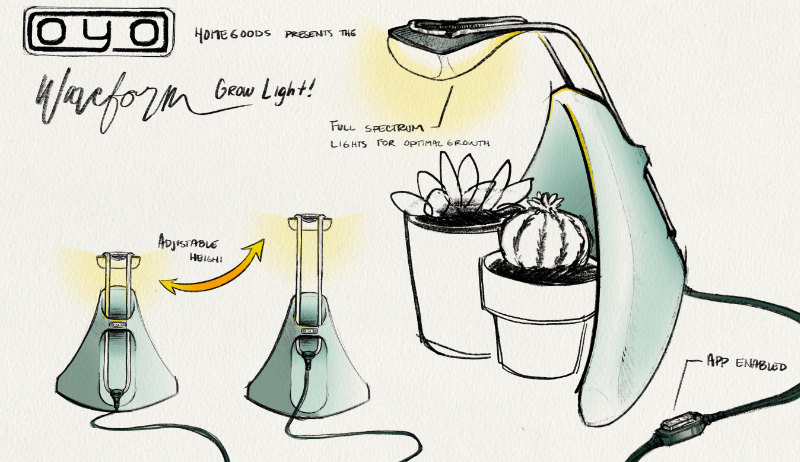 OYO
HOMEGOODS PRESENTS THE
Waveform GROW LIGHT!
FULL SPECTRUM
LIGHTS FOR OPTIMAL GROWTH
ADJUSTABLE
HEIGHT
APP ENABLED